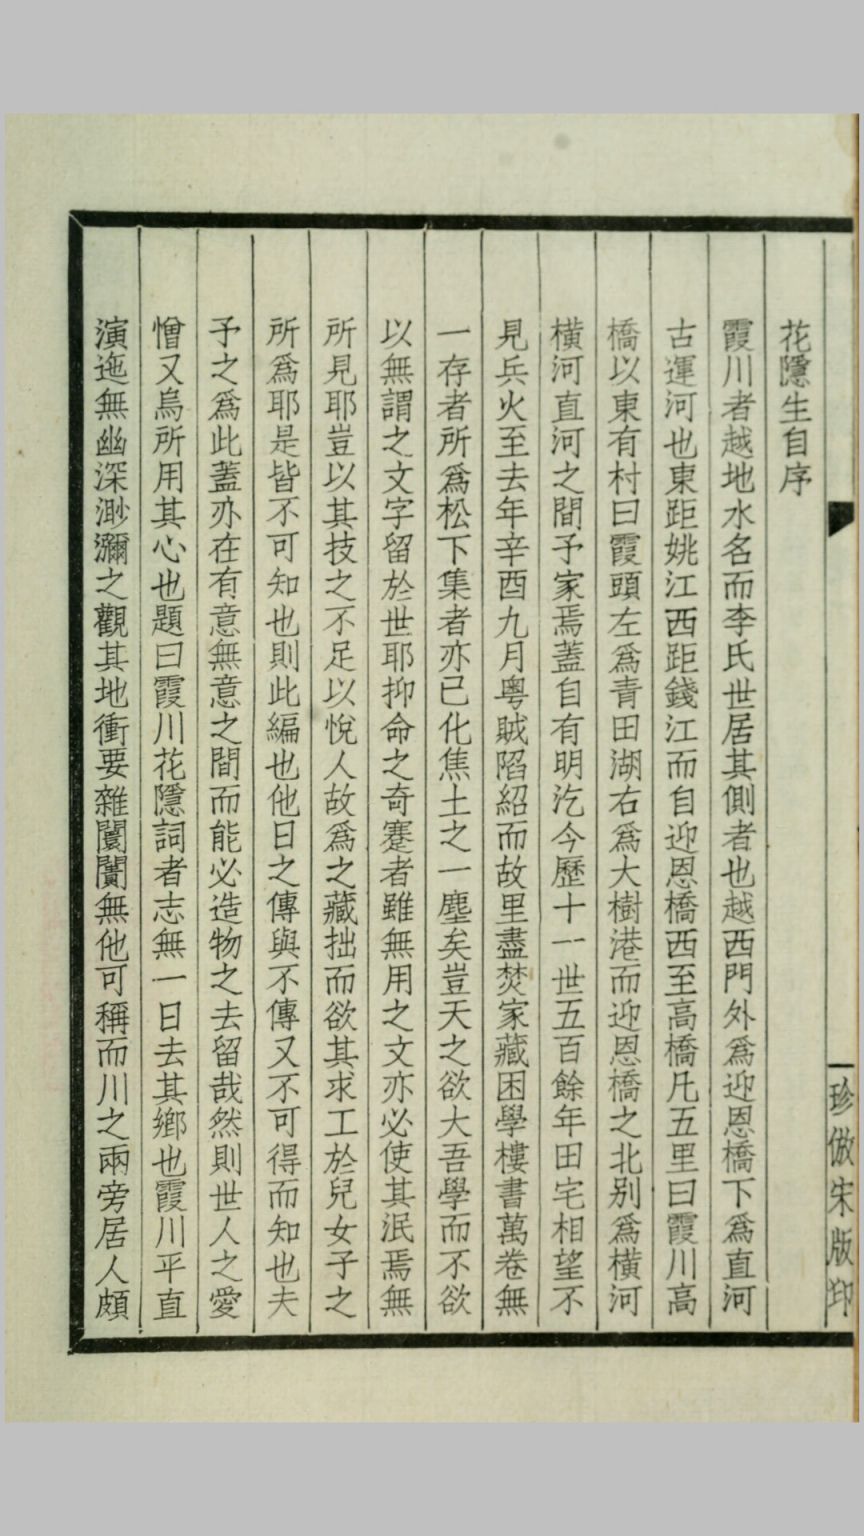 花隱生自序
霞川者越地水名而李氏世居其側者也越西門外爲迎恩橋下爲直河
古運河也東距姚江西距錢江而自迎恩橋西至高橋凡五里曰霞川高
橋以東有村曰霞頭左爲青田湖右爲大樹港而迎恩橋之北别爲橫河
橫河直河之間予家焉蓋自有明汔今歷十一世五百餘年田宅相望不
見兵火至去年辛酉九月粤賊陷紹而故里盡焚家藏困學樓書萬卷無
一存者所爲松下集者亦已化焦土之一塵矣豈天之欲大吾學而不欲
以無謂之文字留於世耶抑命之奇蹇者雖無用之文亦必使其泯焉無
所見耶豈以其技之不足以悅人故爲之藏拙而欲其求工於兒女子之
所爲耶是皆不可知也則此編也他日之傳與不傳又不可得而知也夫
予之爲此蓋亦在有意無意之間而能必造物之去留哉然則世人之愛
憎又烏所用其心也題曰霞川花隱詞者志無一日去其鄉也霞川平直
演迤無幽深渺瀰之觀其地衝要雜闤闠無他可稱而川之兩旁居人頗
珍倣宋版印